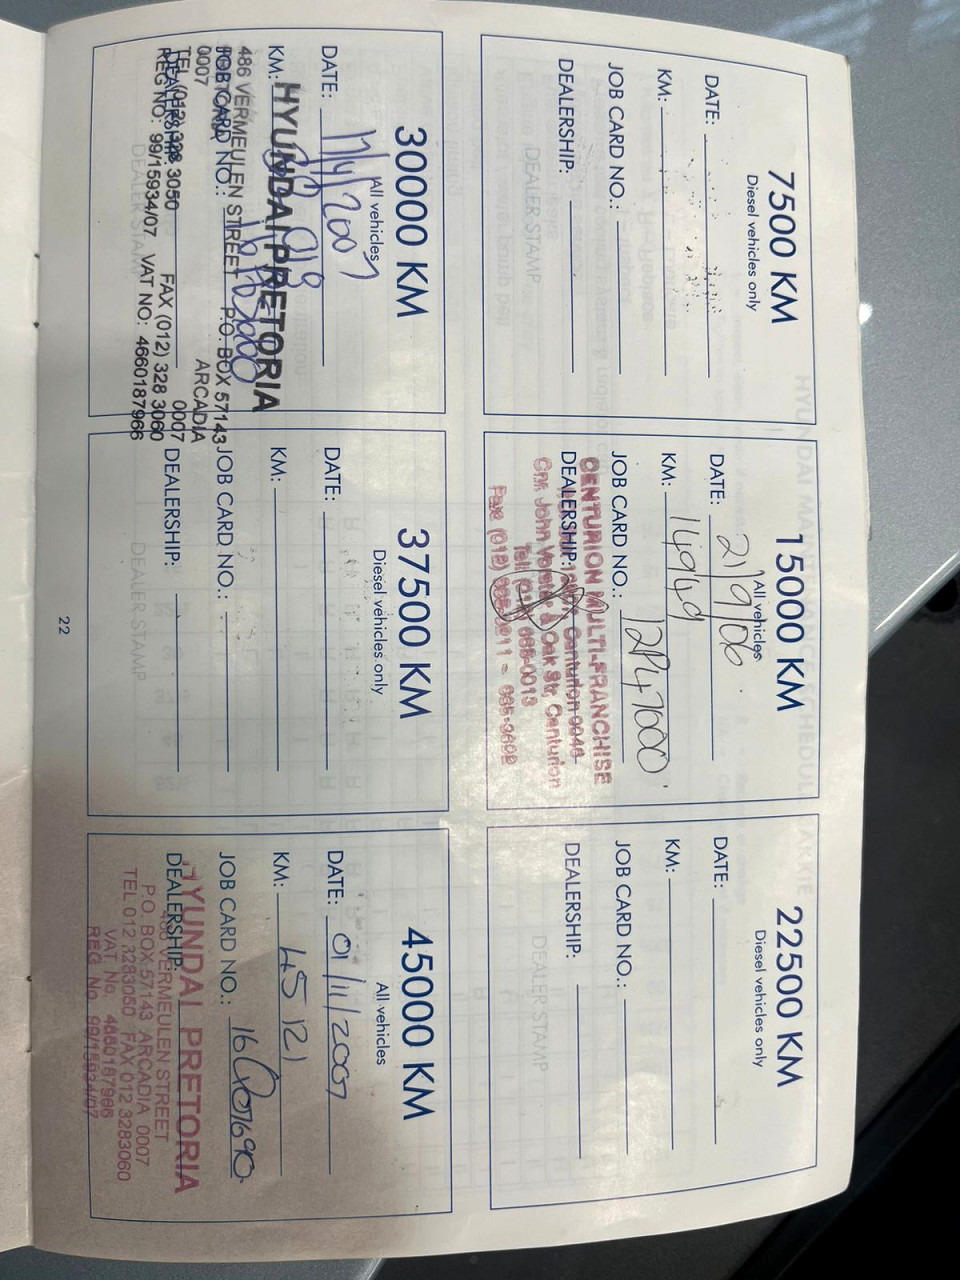 7500 KM
Diesel vehicles only
DATE:
KM:
JOB CARD NO.:
DEALERSHIP:
DEALER STAMP
15000 KM
All vehicles
DATE: 21/9/06
KM: 14949
JOB CARD NO.:
DEALERSHIP:
CENTURION MULTI-FRANCHISE
Centurion 0046
Cnr. John Vorster & Oak Str, Centurion
22500 KM
Diesel vehicles only
DATE:
KM:
JOB CARD NO.:
DEALERSHIP:
DEALER STAMP
30000 KM
All vehicles
DATE: 17/4/2007
KM:
JOB CARD NO.:
DEALERSHIP:
DEALER STAMP
HYUNDAI PRETORIA
486 VERMEULEN STREET P.O. BOX 57143
0007 ARCADIA
TEL (012) 328 3050 0007
FAX (012) 328 3060
REG NO: 99/15934/07 VAT NO: 4660187966
37500 KM
Diesel vehicles only
DATE:
KM:
JOB CARD NO.:
DEALERSHIP:
DEALER STAMP
45000 KM
All vehicles
DATE: 01/11/2007
KM: 45 121
JOB CARD NO.:
DEALERSHIP:
HYUNDAI PRETORIA
486 VERMEULEN STREET
P.O. BOX 57143 ARCADIA 0007
TEL 012 3283050 FAX 012 3283060
VAT No. 4660187966
REG. No. 99/15934/07
22